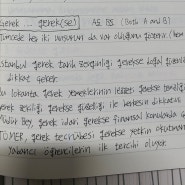 Gerek .. gerek(se) : A도 B도 (Both A and B)
Tümcede her iki unsurun da var olduğunu gösterir (hem
İstanbul gerek tarih zenginliği gerekse doğal güzel
dikkat çeker.
Bu lokanta gerek yemeklerinin lezzeti gerekse temizliği
gerek zekiliği gerekse güzelliği ile herkesin dikkatini
Müdür Bey, gerek idari gerekse finansal konularda
TÖMER, gerek tecrübesi gerekse yetkin okutman
yabancı öğrencilerin ilk tercihi oluyor.